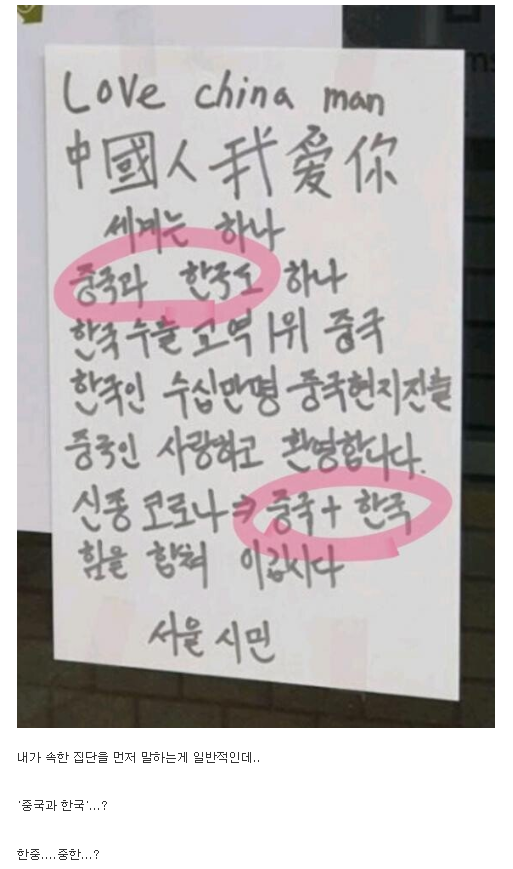 Love china man
中國人 我爱你
세계는 하나
중국과 한국도 하나
한국 수출 교역 1위 중국
한국인 수십만명 중국현지진출
중국인 사랑하고 환영합니다.
신종 코로나 => 중국 + 한국
힘을 합쳐 이깁시다
서울 시민
내가 속한 집단을 먼저 말하는게 일반적인데..
'중국과 한국'...?
한중....중한...?